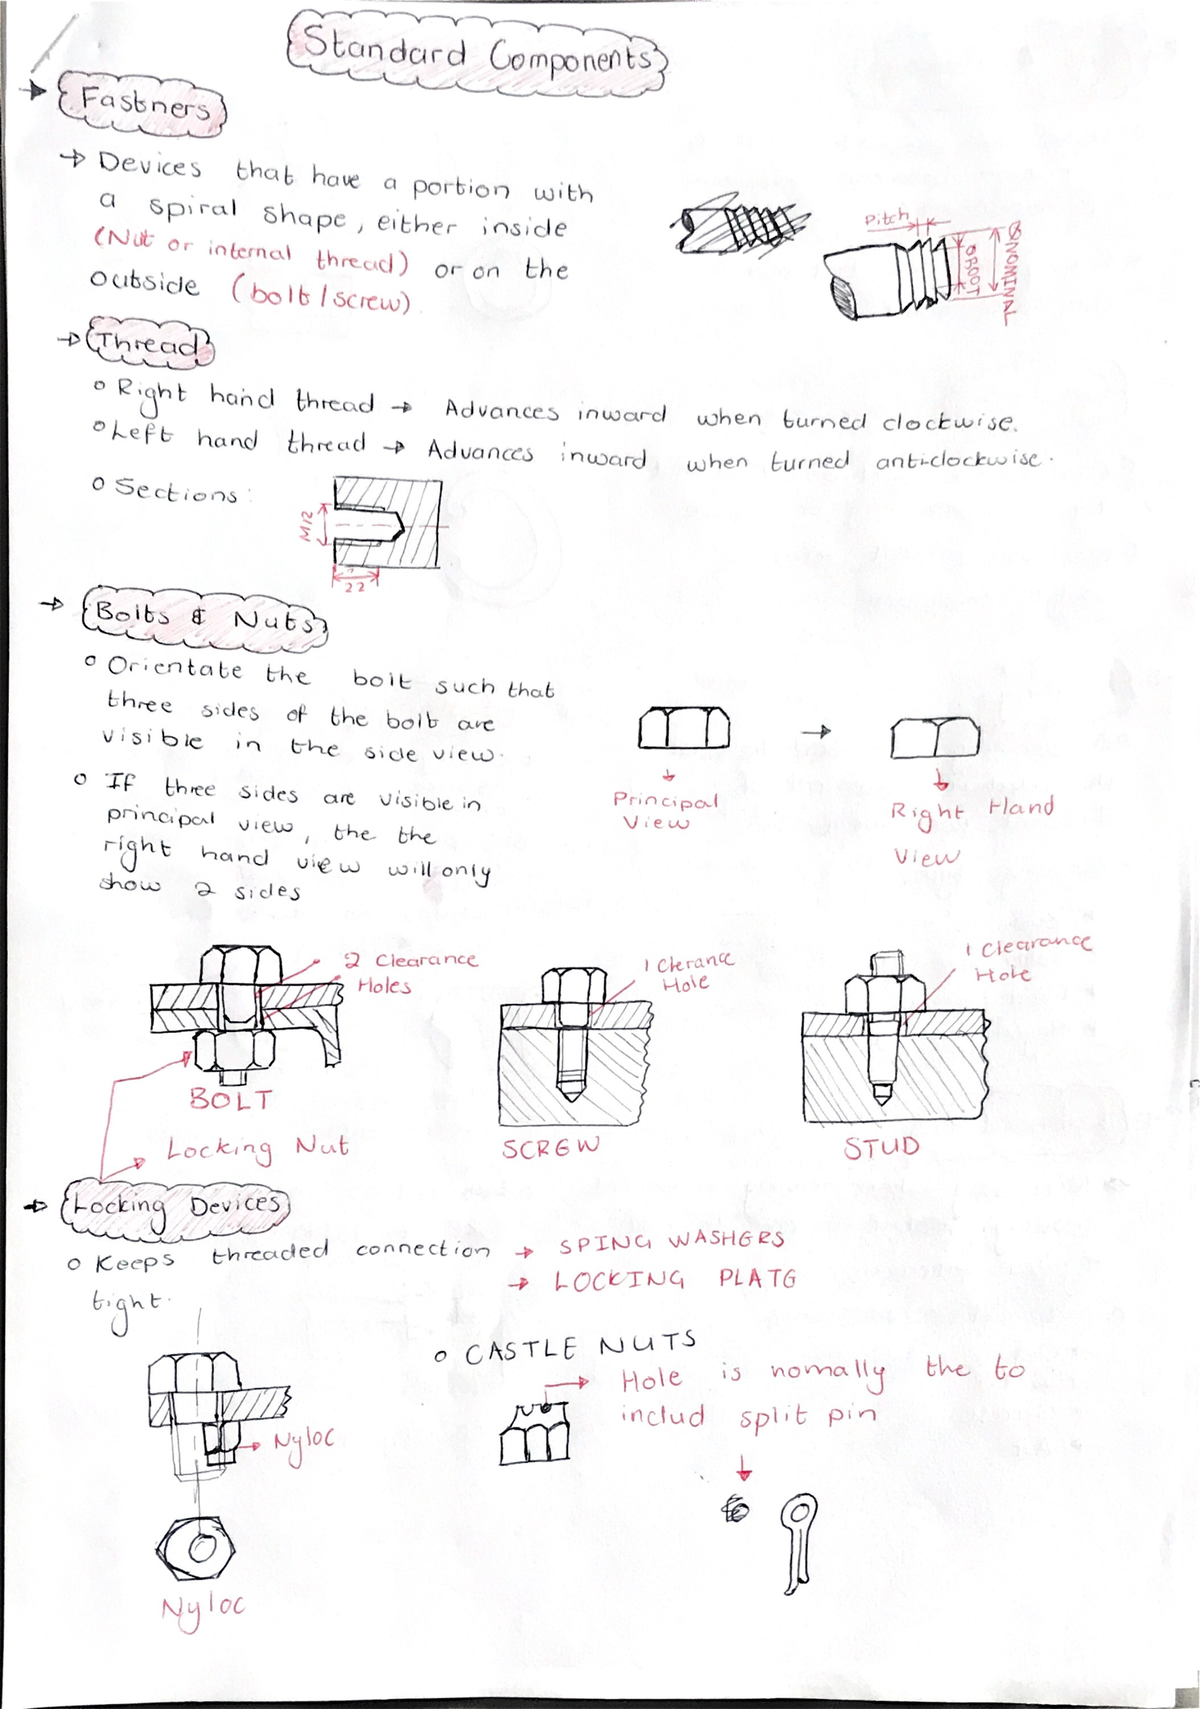 Standard Components
Fastners
Devices that have a portion with
a spiral shape, either inside
(Nut or internal thread) or on the
outside (bolt/screw)
Pitch
Ø ROOT
Ø NOMINAL
Thread
Right hand thread → Advances inward when turned clockwise.
Left hand thread → Advances inward when turned anticlockwise.
Sections:
M12
22
Bolts & Nuts
Orientate the bolt such that
three sides of the bolt are
visible in the side view.
If three sides are visible in
principal view, the the
right hand view will only
show 2 sides
Principal
View
Right Hand
View
2 Clearance
Holes
BOLT
Locking Nut
1 Clerance
Hole
SCREW
1 Clearance
Hole
STUD
Locking Devices
Keeps threaded connection → SPING WASHERS
tight.
→ LOCKING PLATE
Nyloc
Nyloc
CASTLE NUTS
Hole is nomally the to
includ split pin